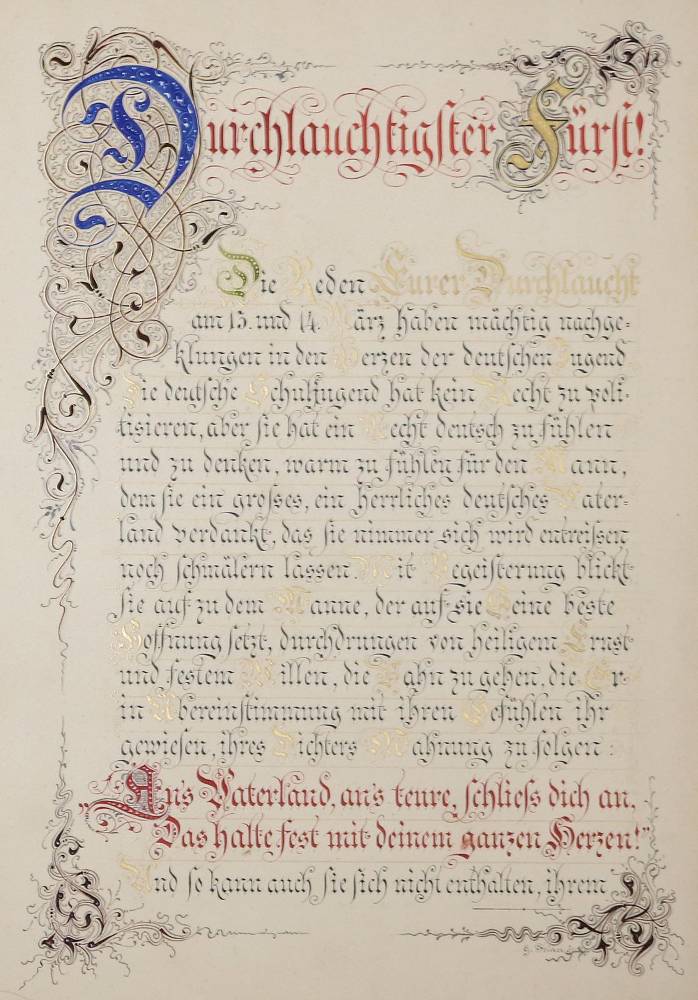 Durchlauchtigster Fürst!
Die Reden Eurer Durchlaucht
am 13. und 14. März haben mächtig nachge-
klungen in den Herzen der deutschen Jugend
Die deutsche Schuljugend hat kein Recht zu poli-
tisieren, aber sie hat ein Recht deutsch zu fühlen
und zu denken, warm zu fühlen für den Mann,
dem sie ein grosses, ein herrliches deutsches Vater-
land verdankt, das sie nimmer sich wird entreissen
noch schmälern lassen. Mit Begeisterung blickt
sie auf zu dem Manne, der auf sie Seine beste
Hoffnung setzt, durchdrungen von heiligem Ernst
und festem Willen, die Bahn zu gehen, die Er
in Übereinstimmung mit ihren Gefühlen ihr
gewiesen, ihres Dichters Mahnung zu folgen:
„An's Vaterland, an's teure, schliess dich an,
Das halte fest mit deinem ganzen Herzen!"
Und so kann auch sie sich nicht enthalten, ihrem